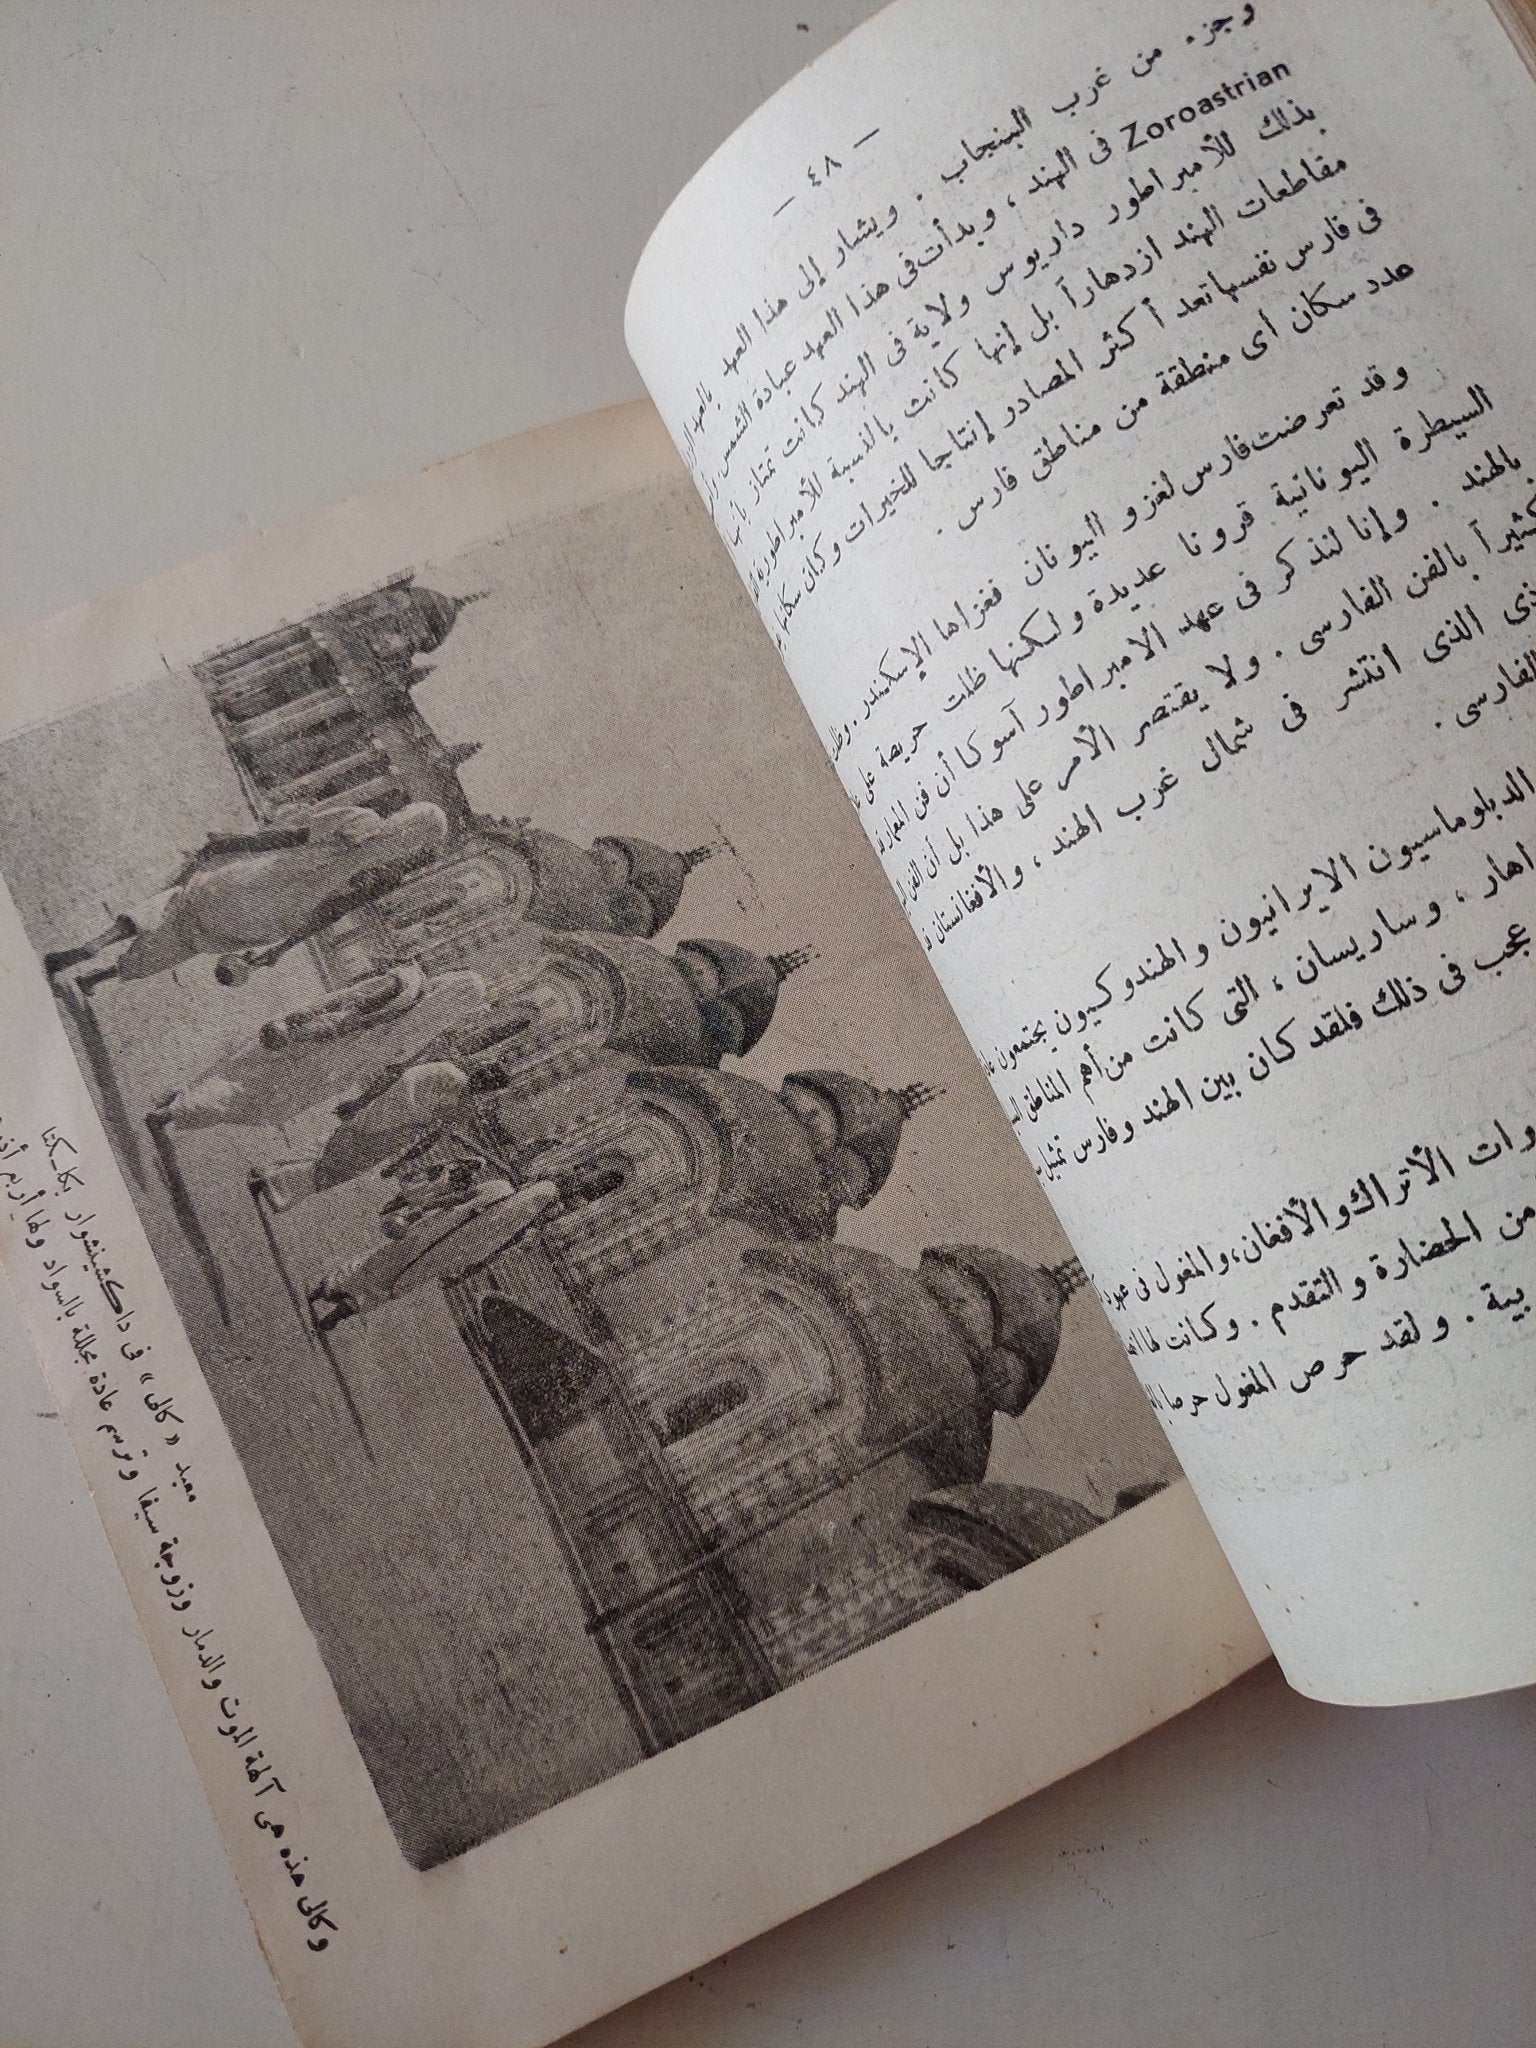 — ٤٨ —
وجزء من غرب البنجاب . ويشار إلى هذا العهد بالعهد
Zoroastrian فى الهند ، وبدأت فى هذا العهد عبادة الشمس
بذلك للأمبراطور داريوس ولاية فى الهند كانت تمتاز بأنها
مقاطعات الهند ازدهاراً بل إنها كانت بالنسبة للأمبراطورية
فى فارس نفسها تعد أكثر المصادر إنتاجا للخيرات وكان سكانها
عدد سكان أى منطقة من مناطق فارس .
وقد تعرضت فارس لغزو اليونان فغزاها الإسكندر . وظلت
السيطرة اليونانية قرونا عديدة ولكنها ظلت حريصة على
بالهند . وإنا لنذكر فى عهد الامبراطور آسوكا أن فن المعمار
كثيراً بالفن الفارسى . ولا يقتصر الأمر على هذا بل أن الفن
الذى انتشر فى شمال غرب الهند ، والأفغانستان
الفارسى .
الدبلوماسيون الايرانيون والهندوكيون يجتمعون
اهار ، وساريسان ، التى كانت من أهم المناطق
عجب فى ذلك فلقد كان بين الهند وفارس تمثيل
وات الأتراك والأفغان، والمغول فى عهد
من الحضارة والتقدم . وكانت لها
بية . ولقد حرص المغول حرصا
معبد «كالى» فى داكشينشوار بكلكتا
وكالى هذه هى آلهة الموت والدمار وزوجة سيفا وترسم عادة مجللة بالسواد ولها أربع